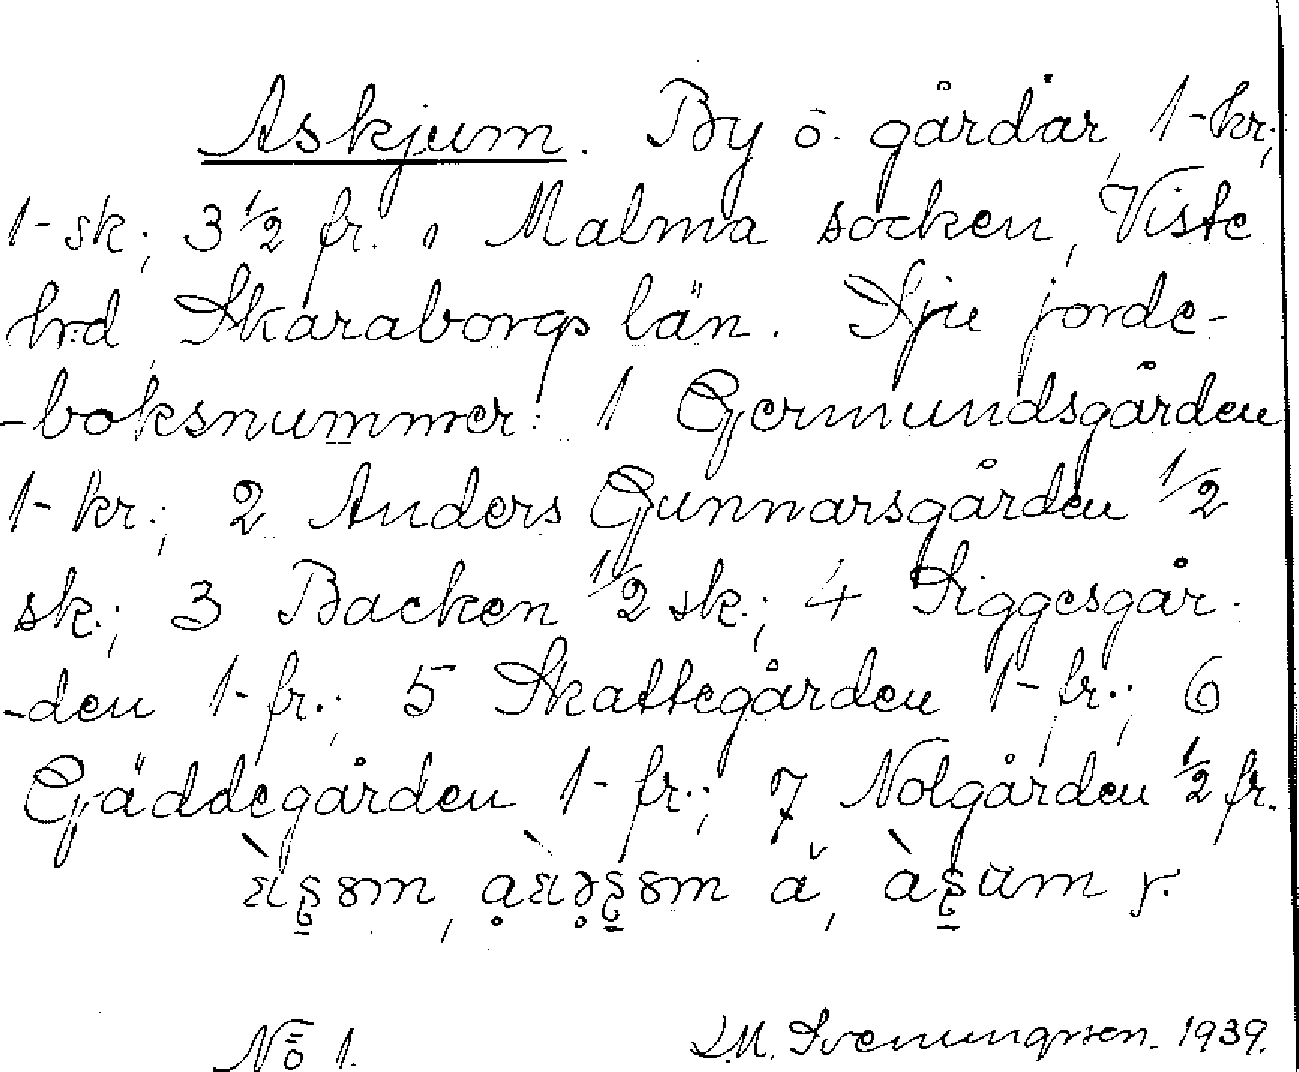 Askjum. By o. gårdar, 1-kr.,
1-sk., 3 1/2 fr. i Malma socken, Viste
hrd, Skaraborgs län. Sju jorde-
-boksnummer: 1 Germundsgården
1-kr.; 2 Anders Gunnarsgården 1/2
sk.; 3 Backen 1/2 sk.; 4 Siggesgår-
-den 1-fr.; 5 Skattegården 1-fr.; 6
Gäddegården 1-fr.; 7 Nolgården 1/2 fr.
No 1. Svenungsson. 1939.